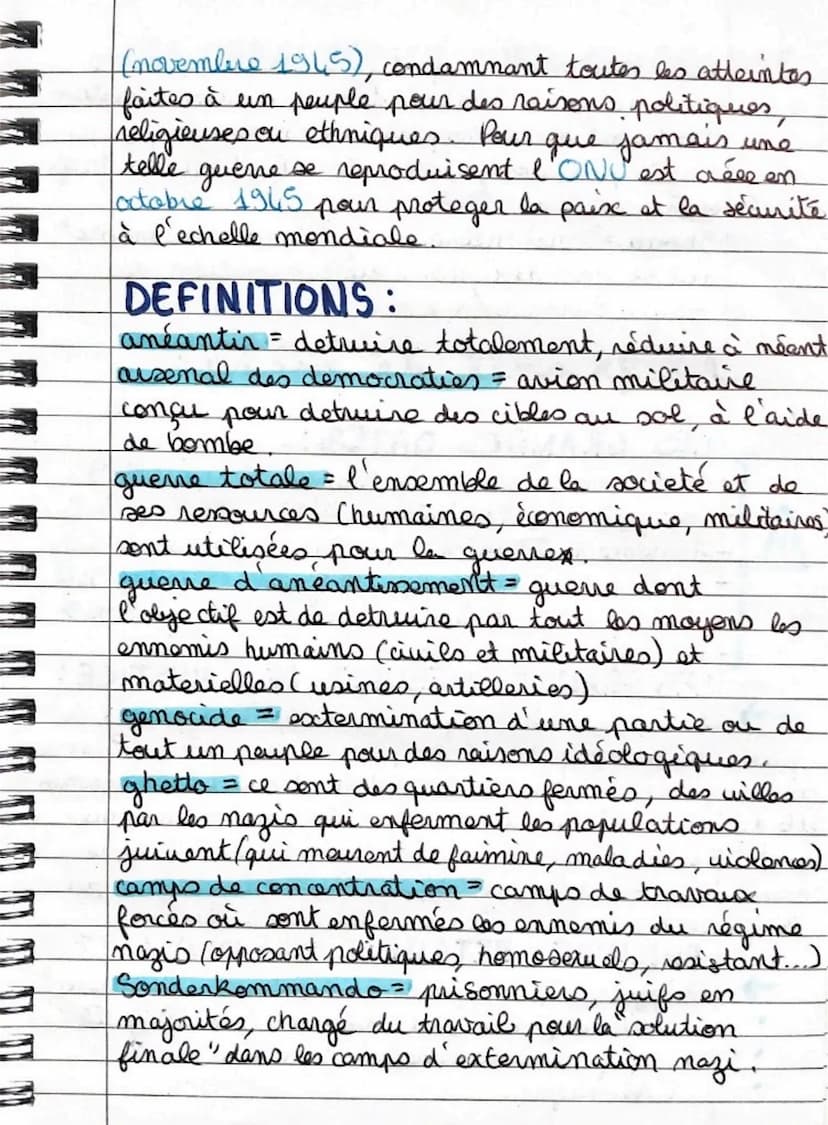 (novembre 1945), condamnant toutes les atteintes
faites à un peuple pour des raisons politiques,
religieuses ou ethniques. Pour que jamais une
telle guerre se reproduisent l'ONU est créee en
octobre 1945 pour proteger la paix et la sécurité
à l'echelle mondiale.
DEFINITIONS :
anéantir = detruire totalement, réduire à néant
arsenal des democraties = avion militaire
conçu pour detruire des cibles au sol, à l'aide
de bombe.
guerre totale = l'ensemble de la societé et de
ses ressources (humaines, économique, militaires)
sont utilisées pour la guerre.
guerre d'anéantissement = guerre dont
l'objectif est de detruire par tout les moyens les
ennemis humains (civils et militaires) et
materielles (usines, artilleries)
genocide = extermination d'une partie ou de
tout un peuple pour des raisons idéologiques.
ghetto = ce sont des quartiers fermés, des villes
par les nazis qui enferment les populations
juivent (qui meurent de faimine, maladies, violences)
camps de concentration = camps de travaux
forcés où sont enfermés les ennemis du régime
nazis (opposant politiques, homosexuels, resistant...)
Sonderkommando = prisonniers, juifs en
majorités, chargé du travail pour la "solution
finale" dans les camps d'extermination nazi.